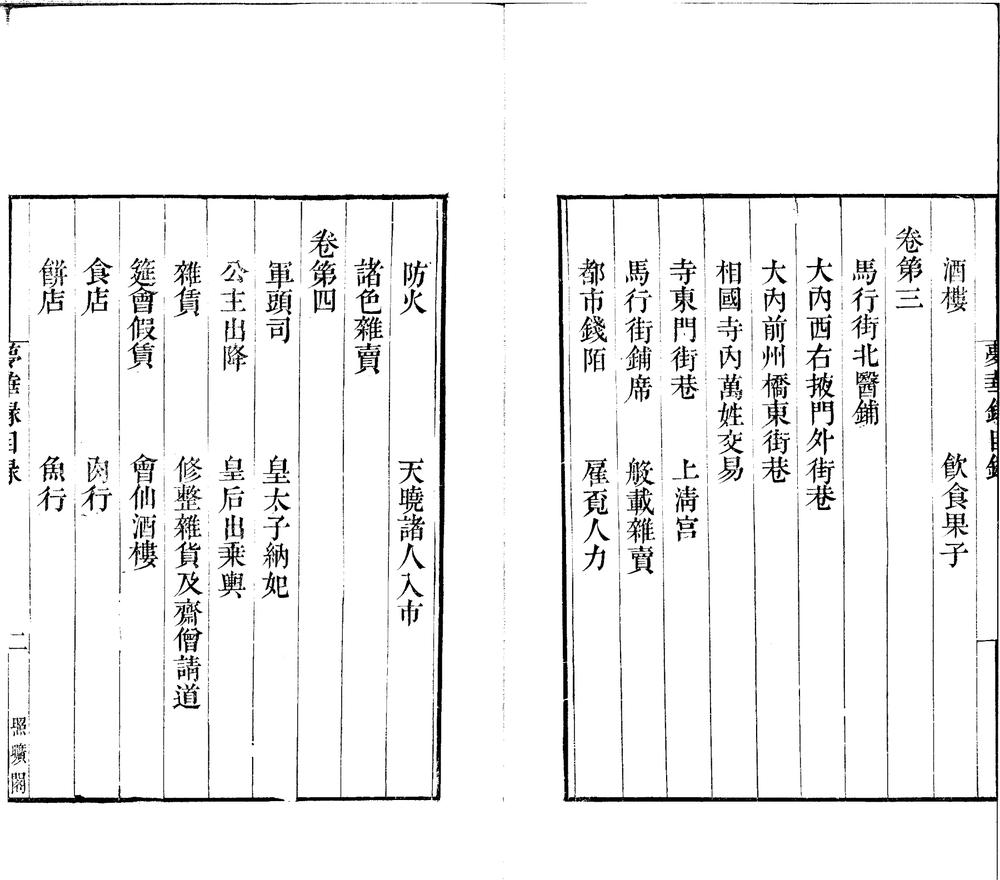 夢華錄目錄
酒樓 飲食果子
卷第三
馬行街北醫鋪
大內西右掖門外街巷
大內前州橋東街巷
相國寺內萬姓交易
寺東門街巷 上清宮
馬行街鋪席 般載雜賣
都市錢陌 雇覔人力
防火 天曉諸人入市
諸色雜賣
卷第四
軍頭司 皇太子納妃
公主出降 皇后出乘輿
雜賃 修整雜貨及齋僧請道
筵會假賃 會仙酒樓
食店 肉行
餅店 魚行
夢華錄目錄 二 照曠閣